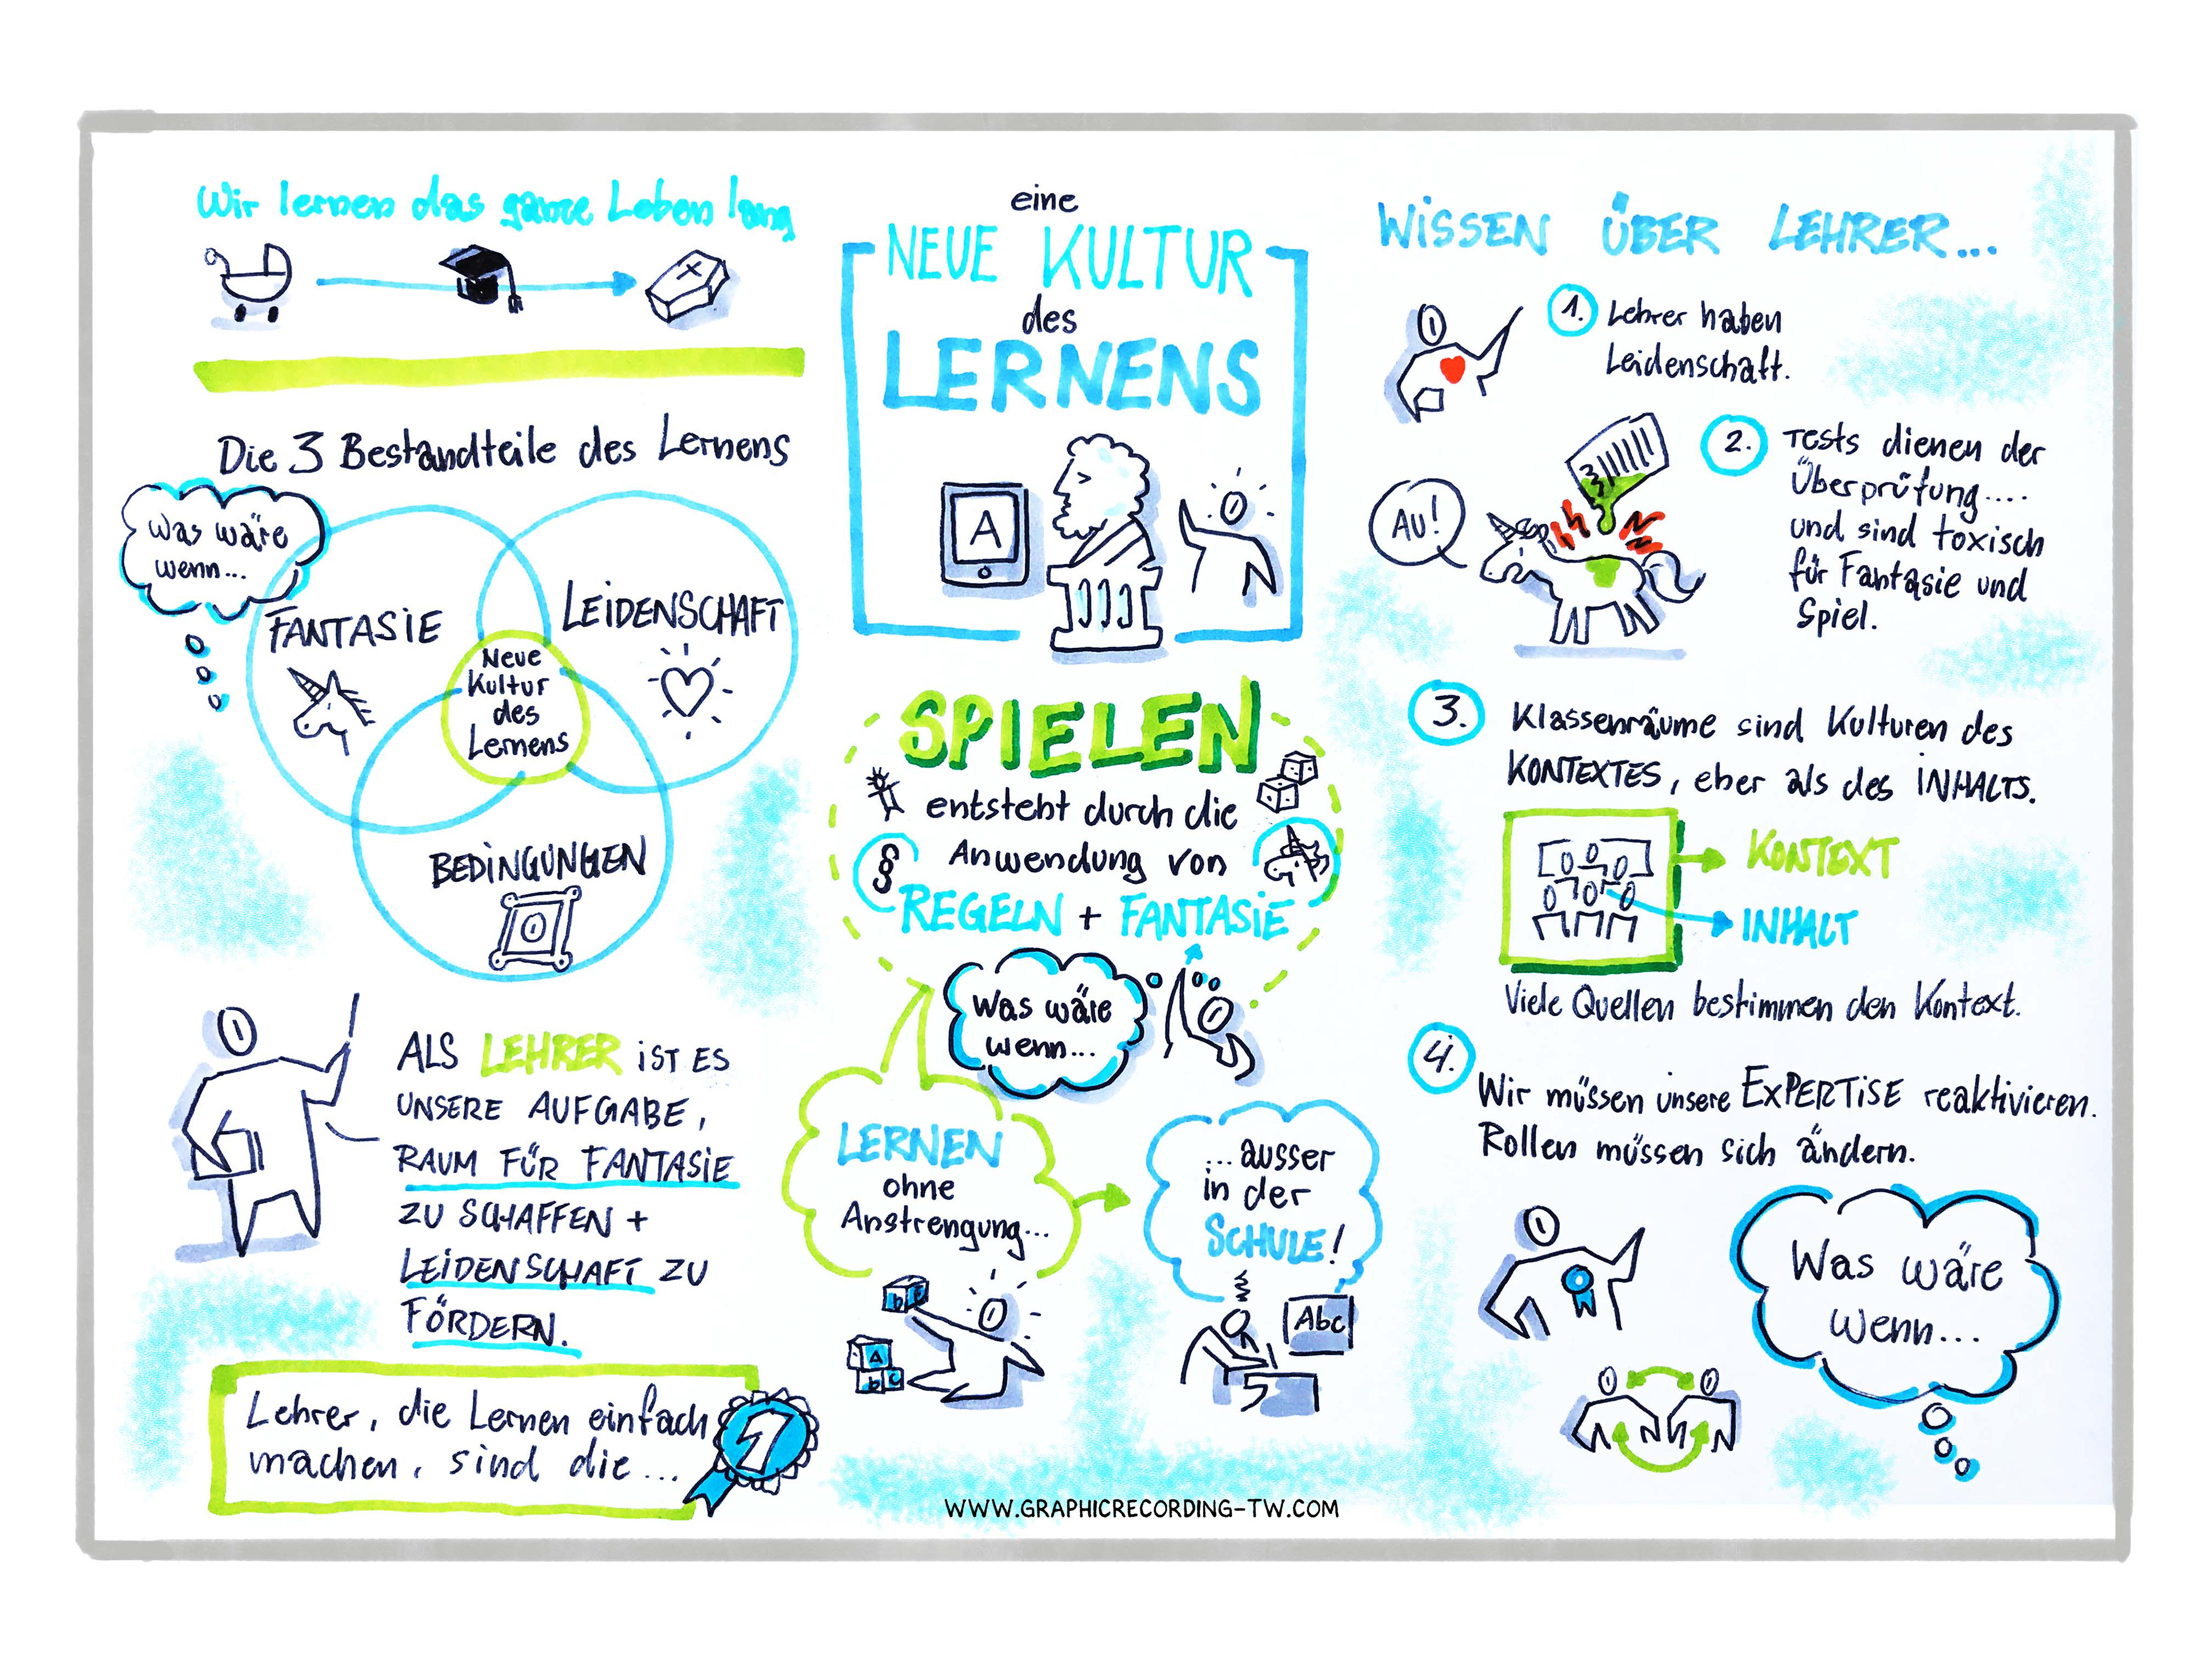 Wir lernen das ganze Leben lang
Die 3 Bestandteile des Lernens
Was wäre
wenn...
FANTASIE
LEIDENSCHAFT
Neue
Kultur
des
Lernens
BEDINGUNGEN
ALS LEHRER IST ES
UNSERE AUFGABE,
RAUM FÜR FANTASIE
ZU SCHAFFEN +
LEIDENSCHAFT ZU
FÖRDERN.
Lehrer, die Lernen einfach
machen, sind die...
1
eine
NEUE KULTUR
des
LERNENS
A
SPIELEN
entsteht durch die
§ Anwendung von
REGELN + FANTASIE
Was wäre
wenn...
LERNEN
ohne
Anstrengung...
...ausser
in der
SCHULE!
b c
A
b c
Abc
WISSEN ÜBER LEHRER...
1. Lehrer haben
Leidenschaft.
AU!
2. Tests dienen der
Überprüfung....
und sind toxisch
für Fantasie und
Spiel.
3. Klassenräume sind Kulturen des
KONTEXTES, eher als des INHALTS.
KONTEXT
INHALT
Viele Quellen bestimmen den Kontext.
4.
Wir müssen unsere EXPERTISE reaktivieren.
Rollen müssen sich ändern.
Was wäre
wenn...
WWW.GRAPHICRECORDING-TW.COM